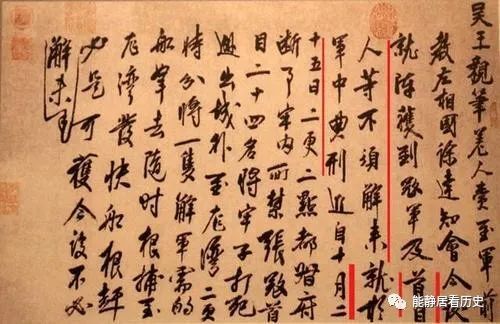 吴王親筆差人赍至軍前
教左相國徐達知會今後
就陣獲到寇軍及首目
人等不須解来就於
軍中典刑近自十月二
十五日二更二點都督府
断了牢内所禁張寇首
目二十四名將牢子打死
越出城外至龙灣二更
時分將一隻解軍需的
船拏去隨時根捕至
龙灣發快船根趕
必是可獲今後不必
解来也
能静居看历史